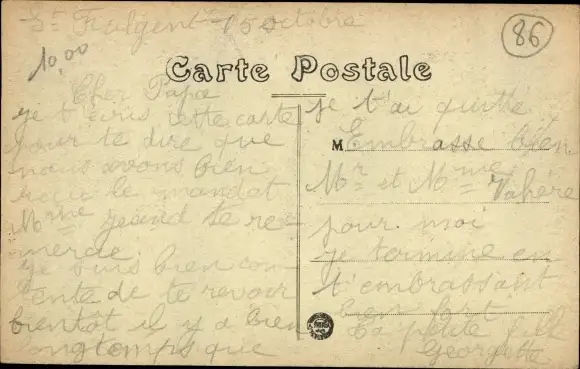 St Fulgent 15 octobre
86
10,00
Carte Postale
Cher Papa
je t'écris cette carte
pour te dire que
nous avons bien
reçu le mandat
Mme te re
mercie
je suis bien con
tente de te revoir
bientôt il y a bien
longtemps que
je t'ai quitté
M Embrasse bien
Mr et Mme
pour moi
je termine en
t'embrassant
bien fort
ta petite fille
Georgette